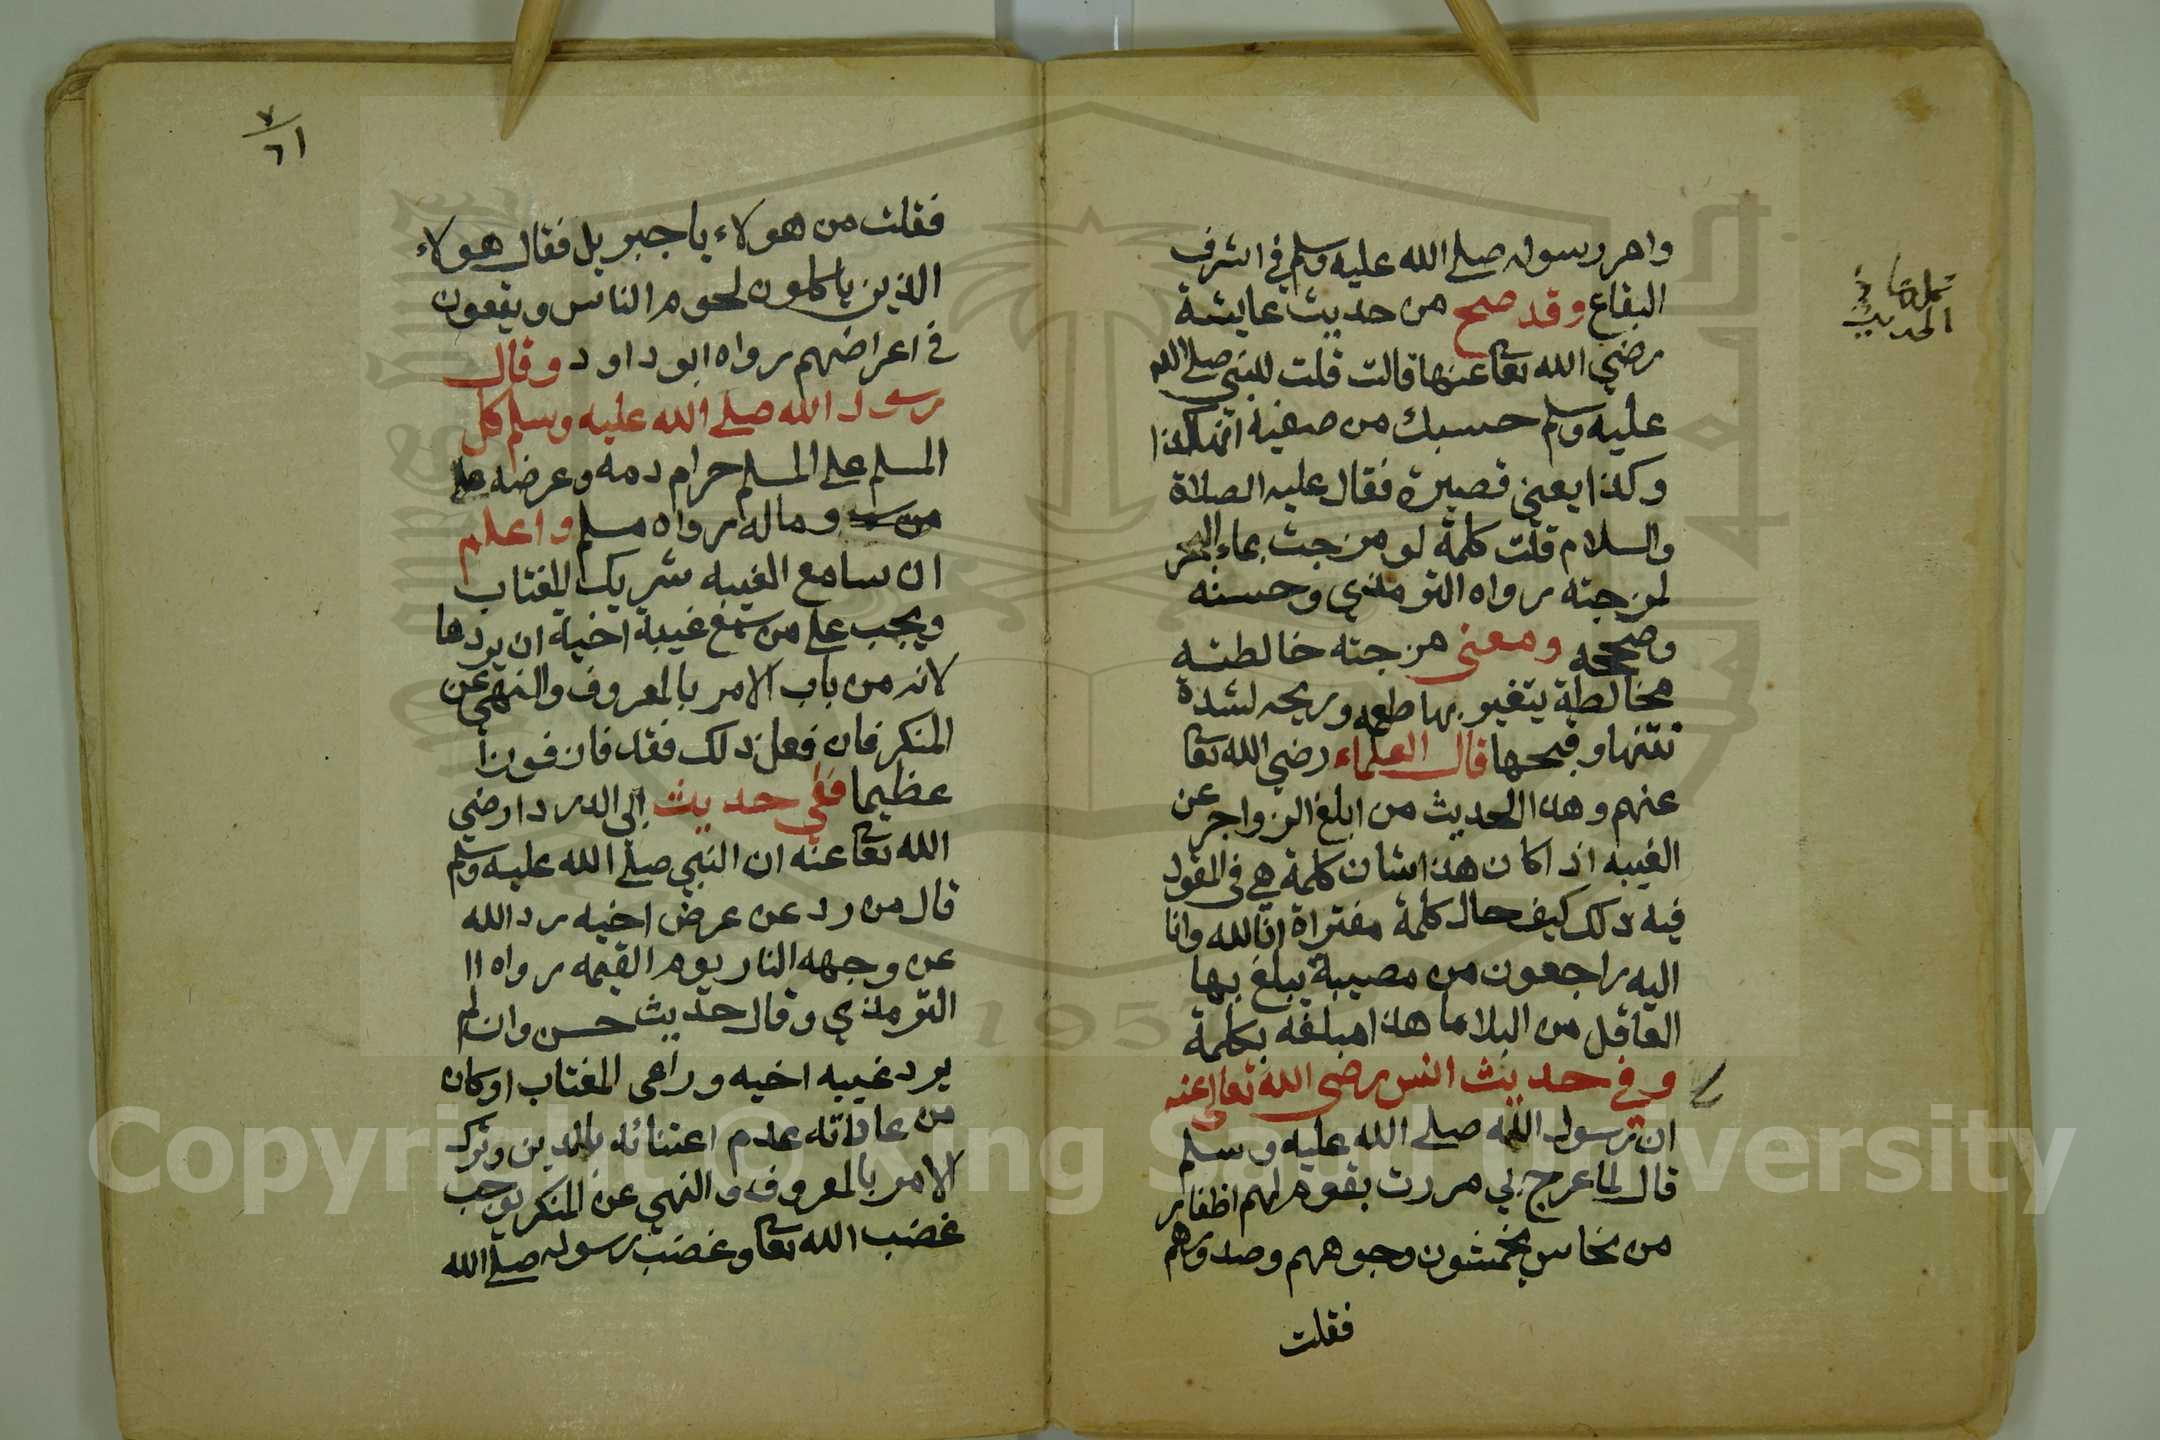 وامر رسوله صلى الله عليه وسلم في اشرف
البقاع وقد صح من حديث عايشة
رضي الله تعا عنها قالت قلت للنبي صلى الله
عليه وسلم حسبك من صفية انها كذا
وكذا يعني قصيرة فقال عليه الصلاة
والسلام قلت كلمة لو مزجت بماء البحر
لمزجته رواه الترمذي وحسنه
وصححه ومعنى مزجته خالطته
مخالطة يتغير بها طعمه وريحه لشدة
نتنها وقبحها قال العلماء رضي الله تعا
عنهم وهذا الحديث من ابلغ الزواجر عن
الغيبه اذا كان هذا شان كلمة هي في المقول
فيه ذلك كيف حال كلمة مفتراة انا لله وانا
اليه راجعون من مصيبة يبلغ بها
العاقل من البلا ما هذا مبلغه بكلمة
وفي حديث انس رضى الله تعالى عنه
ان رسول الله صلى الله عليه وسلم
قال لما عرج بي مررت بقوم لهم اظفار
من نحاس يخمشون وجوههم وصدورهم
فقلت
الحديث
٧
١٦
فقلت من هولاء يا جبريل فقال هولاء
الذين ياكلون لحوم الناس ويقعون
في اعراضهم رواه ابو داود وقال
رسول الله صلى الله عليه وسلم كل
المسلم على المسلم حرام دمه وعرضه
وماله رواه مسلم واعلم
ان سامع الغيبه شريك للمغتاب
ويجب على من سمع غيبة اخيه ان يردها
لانه من باب الامر بالمعروف والنهي عن
المنكر فان فعل ذلك فقد فاز فوزا
عظيما ففي حديث ابي الدردا رضي
الله تعا عنه ان النبي صلى الله عليه وسلم
قال من رد عن عرض اخيه رد الله
عن وجهه النار يوم القيمه رواه اا
الترمذي وقال حديث حسن وان لم
يرد غيبه اخيه وراعى المغتاب او كان
من عاداته عدم اعتنائه بالدين وترك
الامر بالمعروف والنهي عن المنكر يوجب
غضب الله تعا وغضب رسوله صلى الله
1957
Copyright © King Saud University